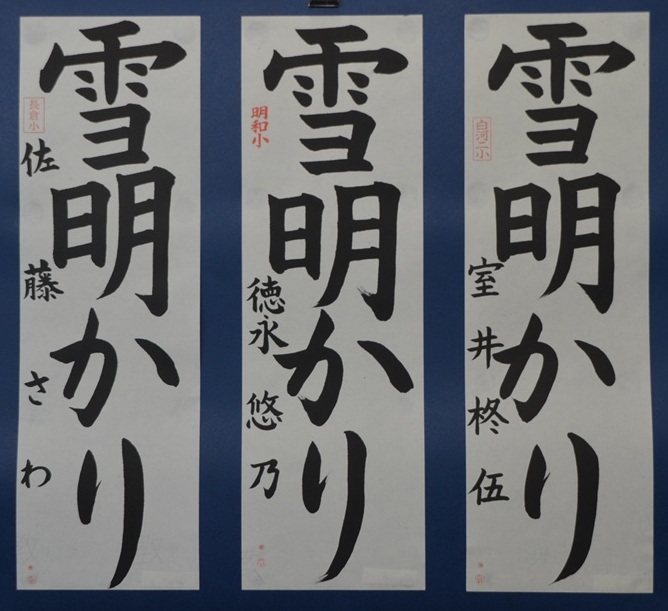 雪明かり
白河二小
室井柊伍
雪明かり
明和小
徳永悠乃
雪明かり
長倉小
佐藤さわ